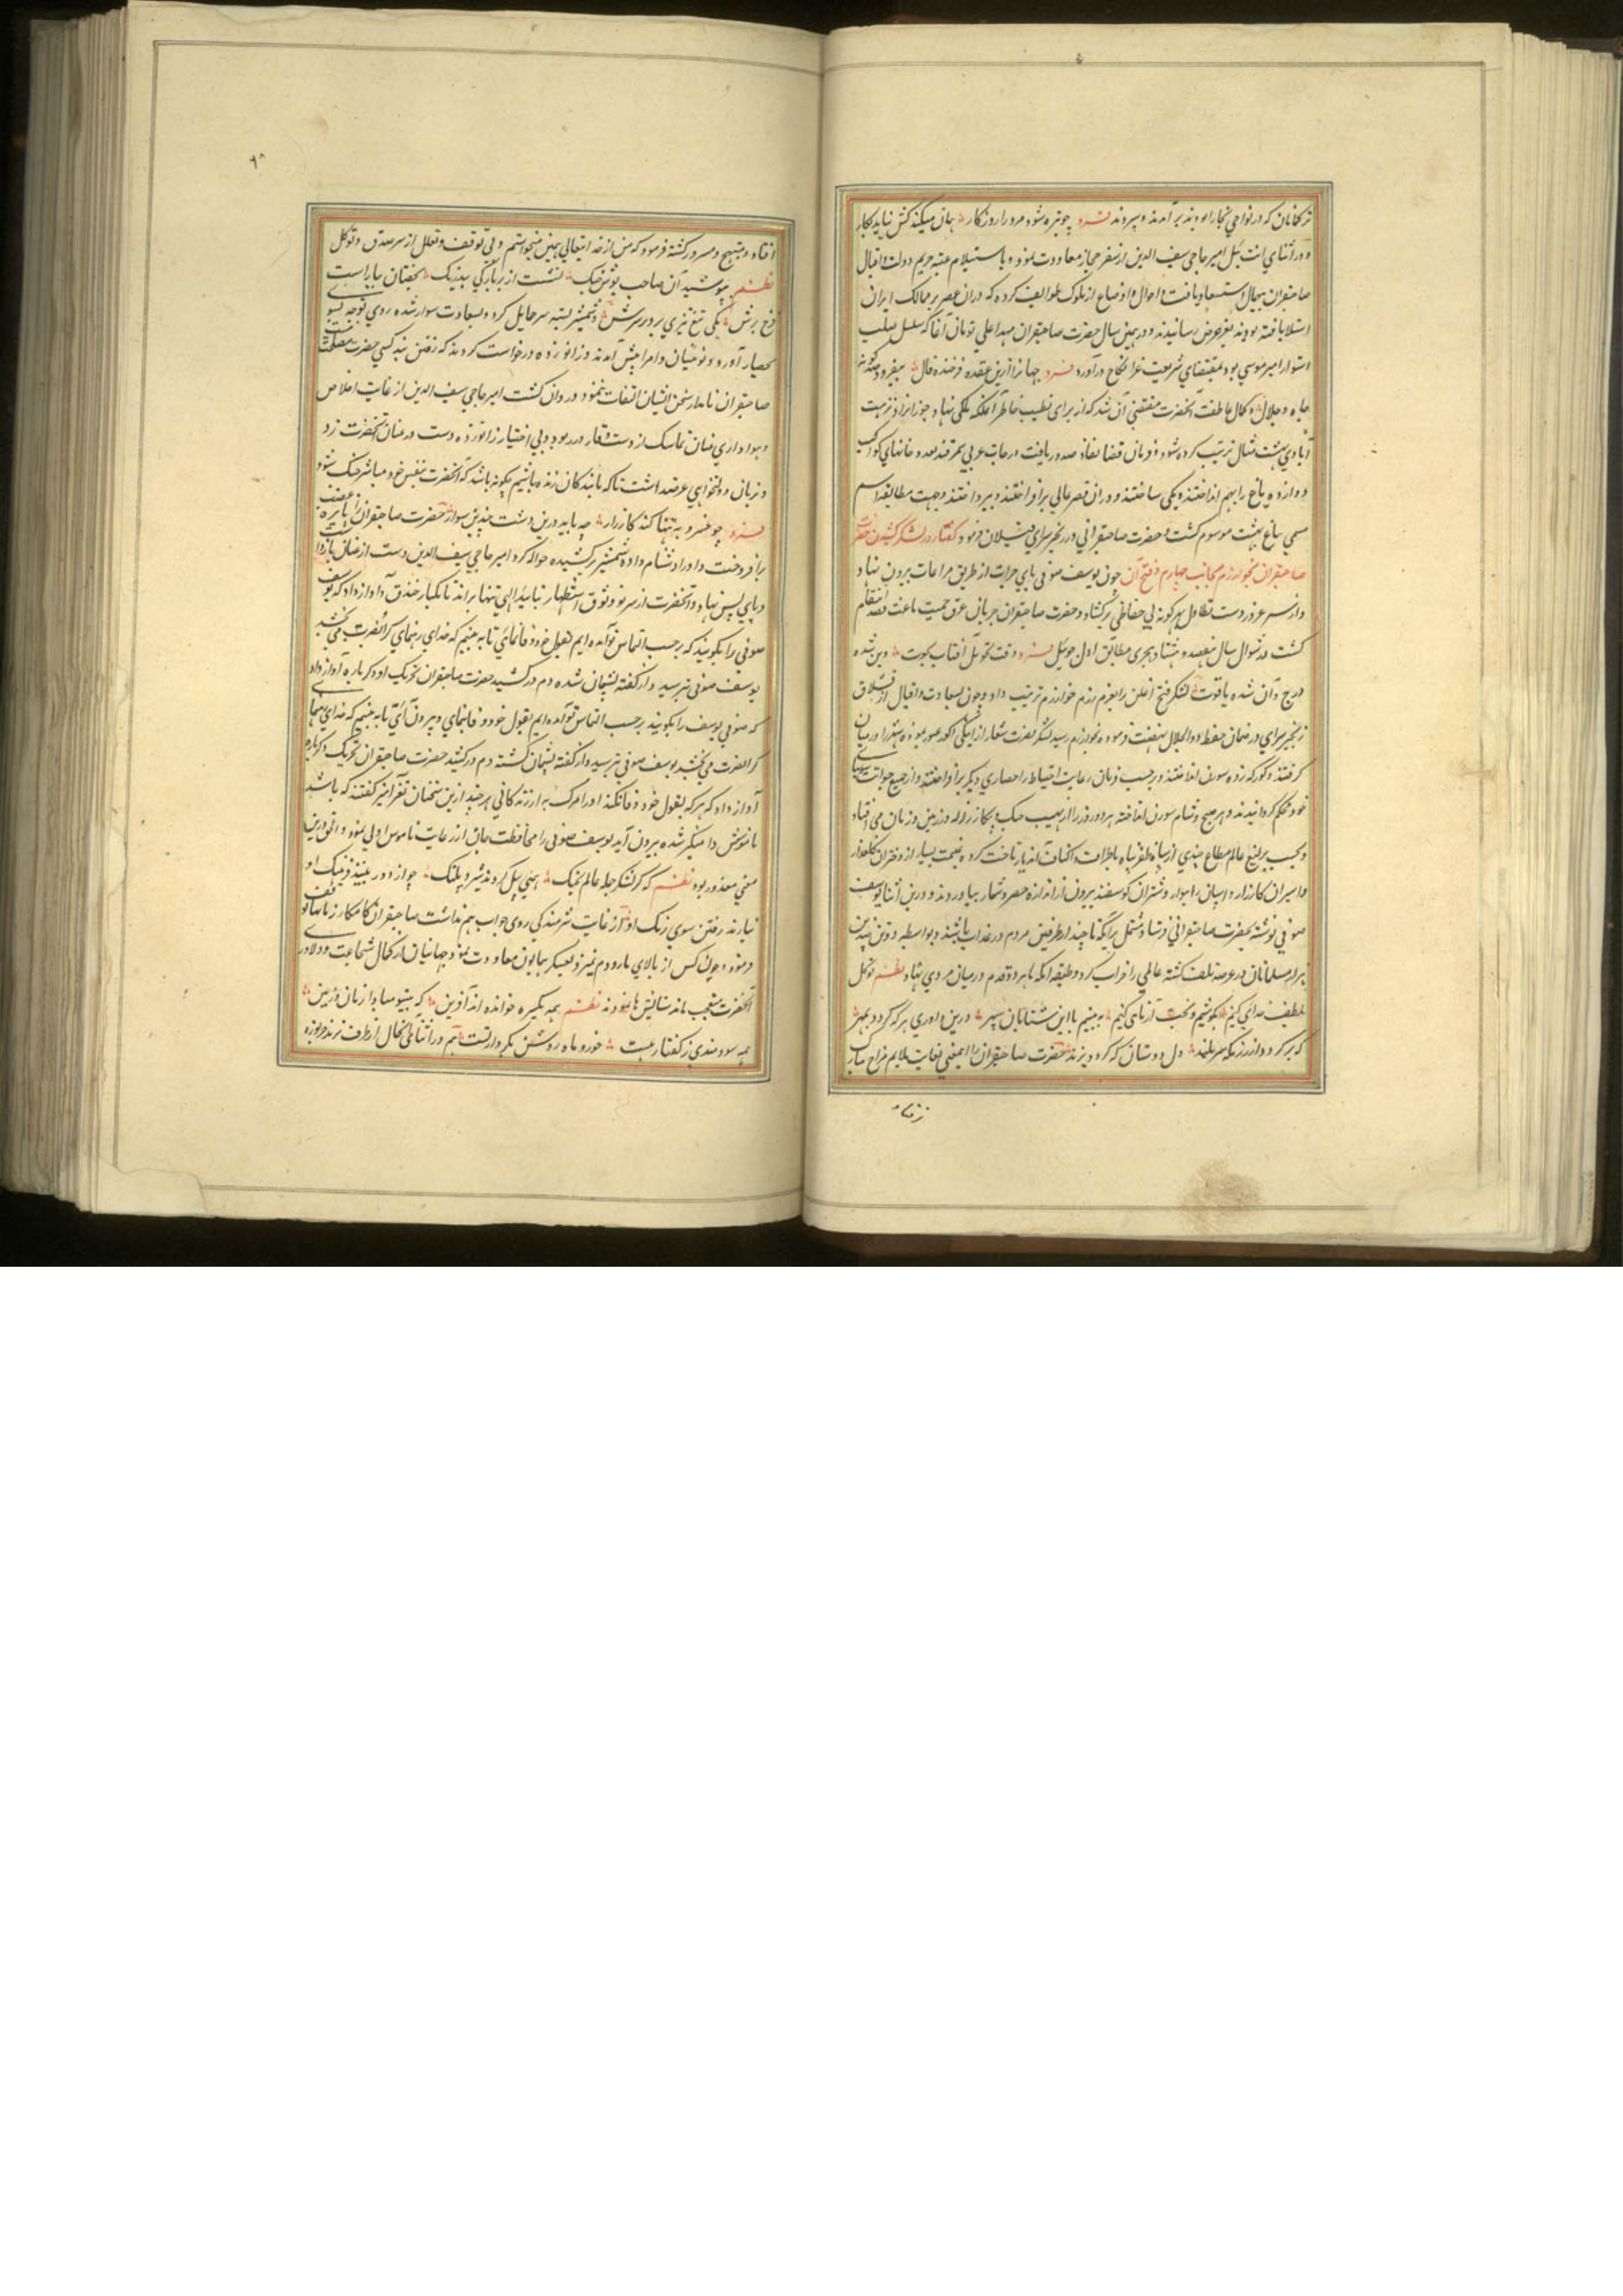 ترکانان که در نواحی بخارا بودند بر آمدند و سپردند فرد چو تیره شود مرد را روزگار همان میکند کش نیاید بکار
و در اثنای امیر حاجی سیف الدین از سفر حجاز معاودت نمود و باستیلام عتبه حریم دولت و اقبال
صاحبقران بیهمال استسعاد یافت و احوال و اوضاع از ملوک طوایف کرده که دران عصر بر ممالک ایران
استیلا یافته بودند بعرض رسانیدند و در همین سال حضرت صاحبقران مهد اعلی تومان آغا که سلسل صلب
استوار امیر موسی بود بمقتضای شریعت غرا بنکاح در آورد فرد جهانرا ازین عقده فرخنده فال بیفزود صد گونه
جاه و جلال و کمال عاطفت آنحضرت مقتضی آن شد که از برای تطییب خاطر آنملکه ملکی نهاد
آبادی بهشت مثال ترتیب کرده شود و فرمان قضا نفاذ صدور یافت در جانب غربی سمرقند بعدد خانهای کواکب
دوازده باغ را بهم انداختند و یکی ساختند و دران قصر عالی برافراختند و بپرداختند و بجهت مطابقه اسم
مسمی بباغ بهشت موسوم گشت و حضرت صاحبقرانی در زنجیر سرای قیشلاق فرمود گفتار در لشکر کشیدن حضرت
صاحبقران بخوارزم بجانب چهارم و فتح آن چون یوسف صوفی پای جرات از طریق مراعات بیرون نهاد
و از سر غرور دست تطاول بهر گونه بی حفاظی بر گشاد و حضرت صاحبقران جریان عرق حمیت باعث قصد انتقام
گشت در شوال سال هفصد و هشتاد هجری مطابق اول یئل فرد وقت تحویل آفتاب بحوت وین شده
درج و آن شده یاقوت لشکر فتح اعلن را بعزم رزم خوارزم ترتیب داد و چون بسعادت و اقبال از قشلاق
زنجیر سرای در ضمان حفظ ذوالجلال نهضت فرموده بخوارزم رسید لشکر نصرت شعار از عبور نموده شهر را در میان
گرفتند و گورکه زده سورن انداختند و بر حسب فرمان رعایت احتیاط را حصاری دیگر برافراختند و از جمیع جوانب
خود محکم گردانیدند و هر صبح و شام سورن انداخته هر دو روز را از نهیب جنگ و پیکار زلزله در زمین و زمان می افتاد
و بحسب یرلیغ عالم مطاع چندی از سپاه ظفر پناه باطراف و اکناف آن دیار تاخت کرده غنیمت بسیار از دختران گلعذار
و اسیران کارزار و اسپان راهوار و شتران گوسفند بیرون از اندازه حصر و شمار بیاوردند و درین اثنا یوسف
صوفی نوشته بحضرت صاحبقرانی فرستاد مشتمل بر آنکه تا چند از طرفین مردم در عذاب باشند و بواسطه دو تن چندین
هزار مسلمانان در عرصه تلف گشته عالمی را خراب گردد طریقه آنکه ما هر دو قدم در میان مردی نهاد نظم توکل
بلطف خدای کنیم بکوشیم و بخت آزمای کنیم به بینیم با این شتابان سپهر درین داوری بر که گردد بمهر
که بر گردد از رزمگه سر بلند دل دوستان که گردد نژند حضرت صاحبقران را این معنی بغایت ملایم مزاج مبارک
زفتاد
۶۸
افتاد و مبتهج و مسرور گشته فرمود که من از خدایتعالی همین میخواستم و بی توقف و تعلل از سر صدق و توکل
نظم بپوشید آن صاحب جنگ نشست از بر بارگی بیدرنگ بخفتان بیاراست
فرخ برش یکی تیغ تیزی بر سرش و شمشیر بسته سپر حمایل کرد و بسعادت سوار شده روی توجه بسوی
حصار آورد و نوئینان و امرا پیش آمدند و زانو زده درخواست کردند که رفتن بنفس حضرت
صاحبقران نامدار سخن ایشان التفات ننمود و روان گشت امیر حاجی سیف الدین از غایت اخلاص
و هواداری عنان تماسک از دست وقار در ربود و بی اختیار زانو زده دست در عنان آنحضرت زد
و بزبان دولتخواهی عرضه داشت تا که ما بندگان زنده باشیم چگونه باشد که آنحضرت بنفس خود مباشر جنگ شود
فرد چو خسرو به تنها کند کارزار چه باید درین دشت چندین سوار حضرت صاحبقران را نایره غضب
برافروخت و او را دشنام داده شمشیر بر کشیده حواله کرد امیر حاجی سیف الدین دست از عنان باز داشت
و پای پس نهاد و آنحضرت از سر نو وثوق و استظهار بتایید الهی تنها براند تا بکنار خندق و آواز داد که یوسف
صوفی را بگویید که بر حسب التماس تو آمده ایم بقول خود وفا نمای تا به بینیم که خدای رهنمای کرا نصرت می بخشد
یوسف صوفی بترسید و از گفته پشیمان شده دم در کشید حضرت صاحبقران تحریک او دگر باره آواز داد
که صوفی یوسف را بگویید بر حسب التماس تو آمده ایم بقول خود وفا نمای و بیرون آئی تا به بینیم که خدای
کرا نصرت می بخشد یوسف صوفی بترسید و از گفته پشیمان گشته دم در کشید حضرت صاحبقران تحریک دگر باره
آواز داد که هر که بقول خود وفا نکند او را مرگ به از زندگانی هر چند ازین سخنان گفتند که باشد
ناموش دامنگیر شده بیرون آید یوسف صوفی را محافظت جان از رعایت ناموس اولی نمود و الحق درین
معنی معذور بود نظم که گر لشکر جمله عالم بجنگ همی پیل گردند شیر و پلنگ چو از دور بینند او
نیارند رفتن سوی او از غایت شرمندگی روی جواب هم نداشت صاحبقران کامکار زمانها توقف
فرمود و چون کس از بالای بارو دم نمیزد بعسکر همایون معاودت نمود و جهانیان از کمال شجاعت و دلاوری
آنحضرت متعجب مانده ستایشها نمودند نظم همه یکسره خوانده اند آفرین که بیتو مبادا زمان و زمین
همه سودمندی ز گفتار تست خور و ماه روشن بکردار تست هم در اثنای آنحال از طرف ترمذ خربوزه